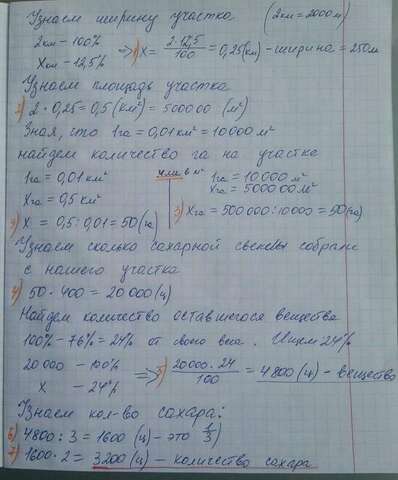 Узнаем ширину участка (2км = 2000м)
2км – 100%
Xкм – 12,5% => 1) X = 2·12,5/100 = 0,25(км) – ширина = 250м
Узнаем площадь участка
2) 2 · 0,25 = 0,5 (км²) = 500000 (м²)
Зная, что 1га = 0,01 км² = 10000 м²
найдем количество га на участке
1га = 0,01 км² или в м² 1га = 10000 м²
Xга = 0,5 км² Xга = 500000 м²
3) X = 0,5 : 0,01 = 50 (га) 3) Xга = 500000 : 10000 = 50 (га)
Узнаем сколько сахарной свеклы собрали
с нашего участка
4) 50 · 400 = 20 000 (ц)
Найдем количество оставшегося вещества
100% – 76% = 24% от своего веса. Ищем 24%
20 000 – 100%
X – 24% => 5) 20000 · 24/100 = 4800 (ц) – вещество
Узнаем кол-во сахара:
6) 4800 : 3 = 1600 (ц) – это 1/3)
7) 1600 · 2 = 3200 (ц) – количество сахара